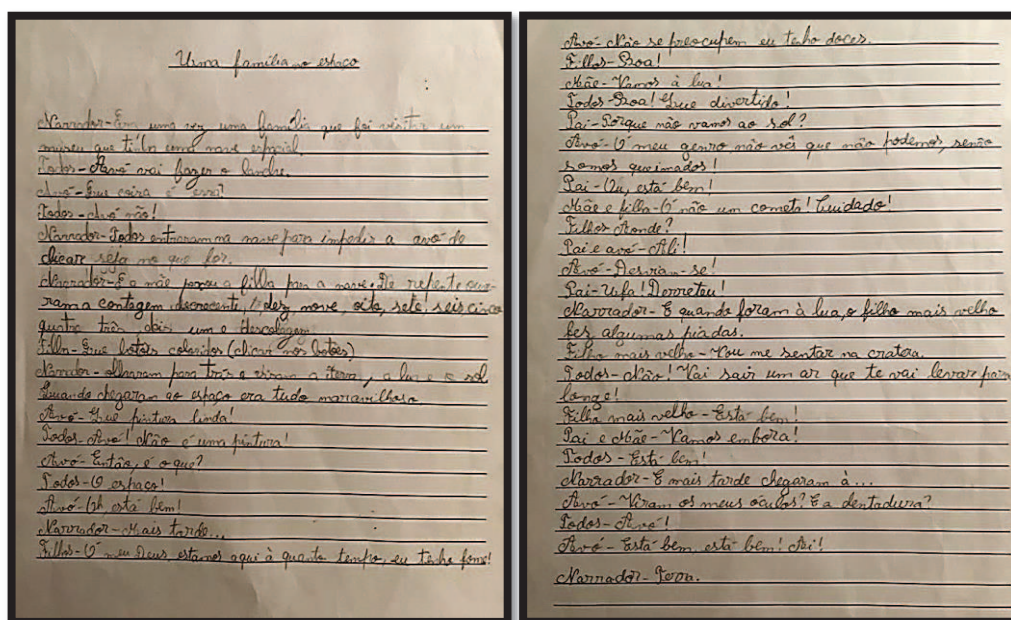 Uma família no espaço
Narrador-Era uma vez uma família que foi visitar um
museu que tinha uma nave espacial.
Todos-Avó vai fazer o lanche.
Avó-Que coisa é essa?
Todos-Avó não!
Narrador-Todos entraram na nave para impedir a avó de
clicar seja no que for.
Narrador-E a mãe puxou a filha para a nave. De repente ouvi-
ram a contagem decrescente, dez, nove, oito, sete, seis cinco
quatro três, dois um e descolagem.
Filha-Que botões coloridos (clicar nos botões)
Narrador-olharam para trás e viram a terra, a lua e o sol
Quando chegaram ao espaço era tudo maravilhoso
Avó-Que pintura linda!
Todos-Avó! Não é uma pintura!
Avó-Então, é o que?
Todos-O espaço!
Avó-Oh está bem!
Narrador-Mais tarde...
Filhos-Ó meu Deus, estamos aqui à quanto tempo, eu tenho fome!
Avó-Não se preocupem eu tenho doces.
Filhos-Boa!
Mãe-Vamos à lua!
Todos-Boa! Que divertido!
Pai-Porque não vamos ao sol?
Avó-Ó meu genro, não vês que não podemos, senão
somos queimados!
Pai-Ou, está bem!
Mãe e filha-Ó não um cometa! Cuidado!
Filhos-Aonde?
Pai e avó-Ali!
Avó-Desviam-se!
Pai-Ufa! Derreteu!
Narrador-E quando foram à lua, o filho mais velho
fez algumas piadas.
Filho mais velho-Vou me sentar na cratera.
Todos-Não! Vai sair um ar que te vai levar para
longe!
Filho mais velho-Está bem!
Pai e Mãe-Vamos embora!
Todos-Está bem!
Narrador-E mais tarde chegaram à...
Avó-Viram os meus oculos? E a dentadura?
Todos-Avó!
Avó-Está bem, está bem! Ai!
Narrador-Terra.